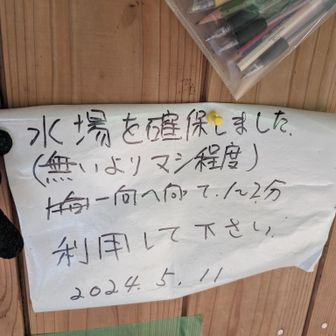 水場を確保しました.
(無いよりマシ程度)
一向へ向て.1〜2分
利用して下さい.
2024.5.11